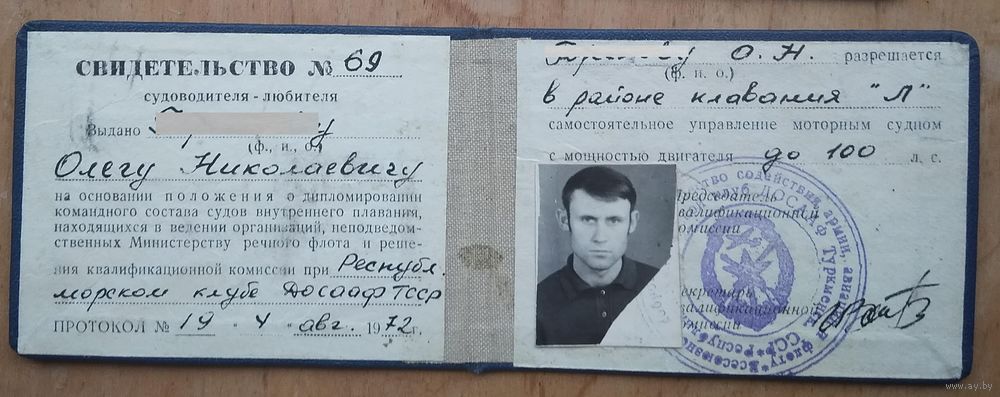 СВИДЕТЕЛЬСТВО № 69
судоводителя-любителя
Выдано
(ф., и., о.)
Олегу Николаевичу
на основании положения о дипломировании
командного состава судов внутреннего плавания,
находящихся в ведении организаций, неподведом-
ственных Министерству речного флота и реше-
ния квалификационной комиссии при Республ.
морском клубе ДОСААФ ТССР
ПРОТОКОЛ № 19 " 4 " авг. 1972 г.
О. Н. разрешается
(ф. и. о.)
в районе плавания "Л"
самостоятельное управление моторным судном
с мощностью двигателя до 100 л. с.
Председатель
квалификационной
комиссии
Секретарь
квалификационной
комиссии
www.ay.by